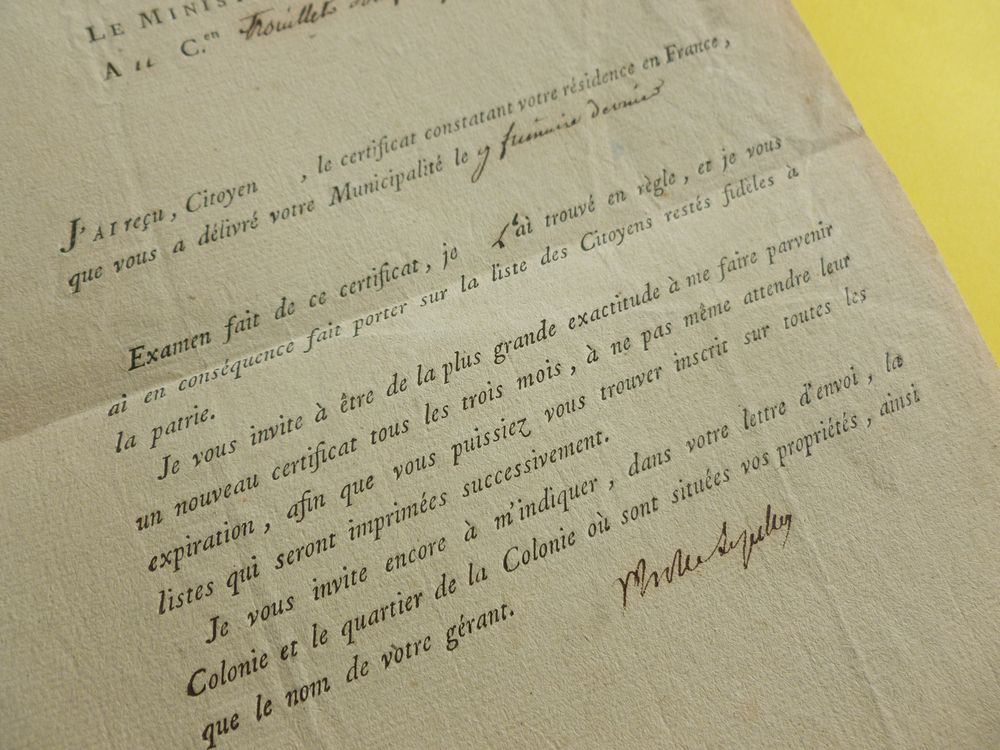 LE MINIS
A C.en
J'AI reçu, Citoyen , le certificat constatant votre résidence en France,
que vous a délivré votre Municipalité le 9 frimaire dernier
Examen fait de ce certificat, je l'ai trouvé en règle, et je vous
ai en conséquence fait porter sur la liste des Citoyens restés fidèles à
la patrie.
Je vous invite à être de la plus grande exactitude à me faire parvenir
un nouveau certificat tous les trois mois, à ne pas même attendre leur
expiration, afin que vous puissiez vous trouver inscrit sur toutes les
listes qui seront imprimées successivement.
Je vous invite encore à m'indiquer, dans votre lettre d'envoi, la
Colonie et le quartier de la Colonie où sont situées vos propriétés, ainsi
que le nom de votre gérant.